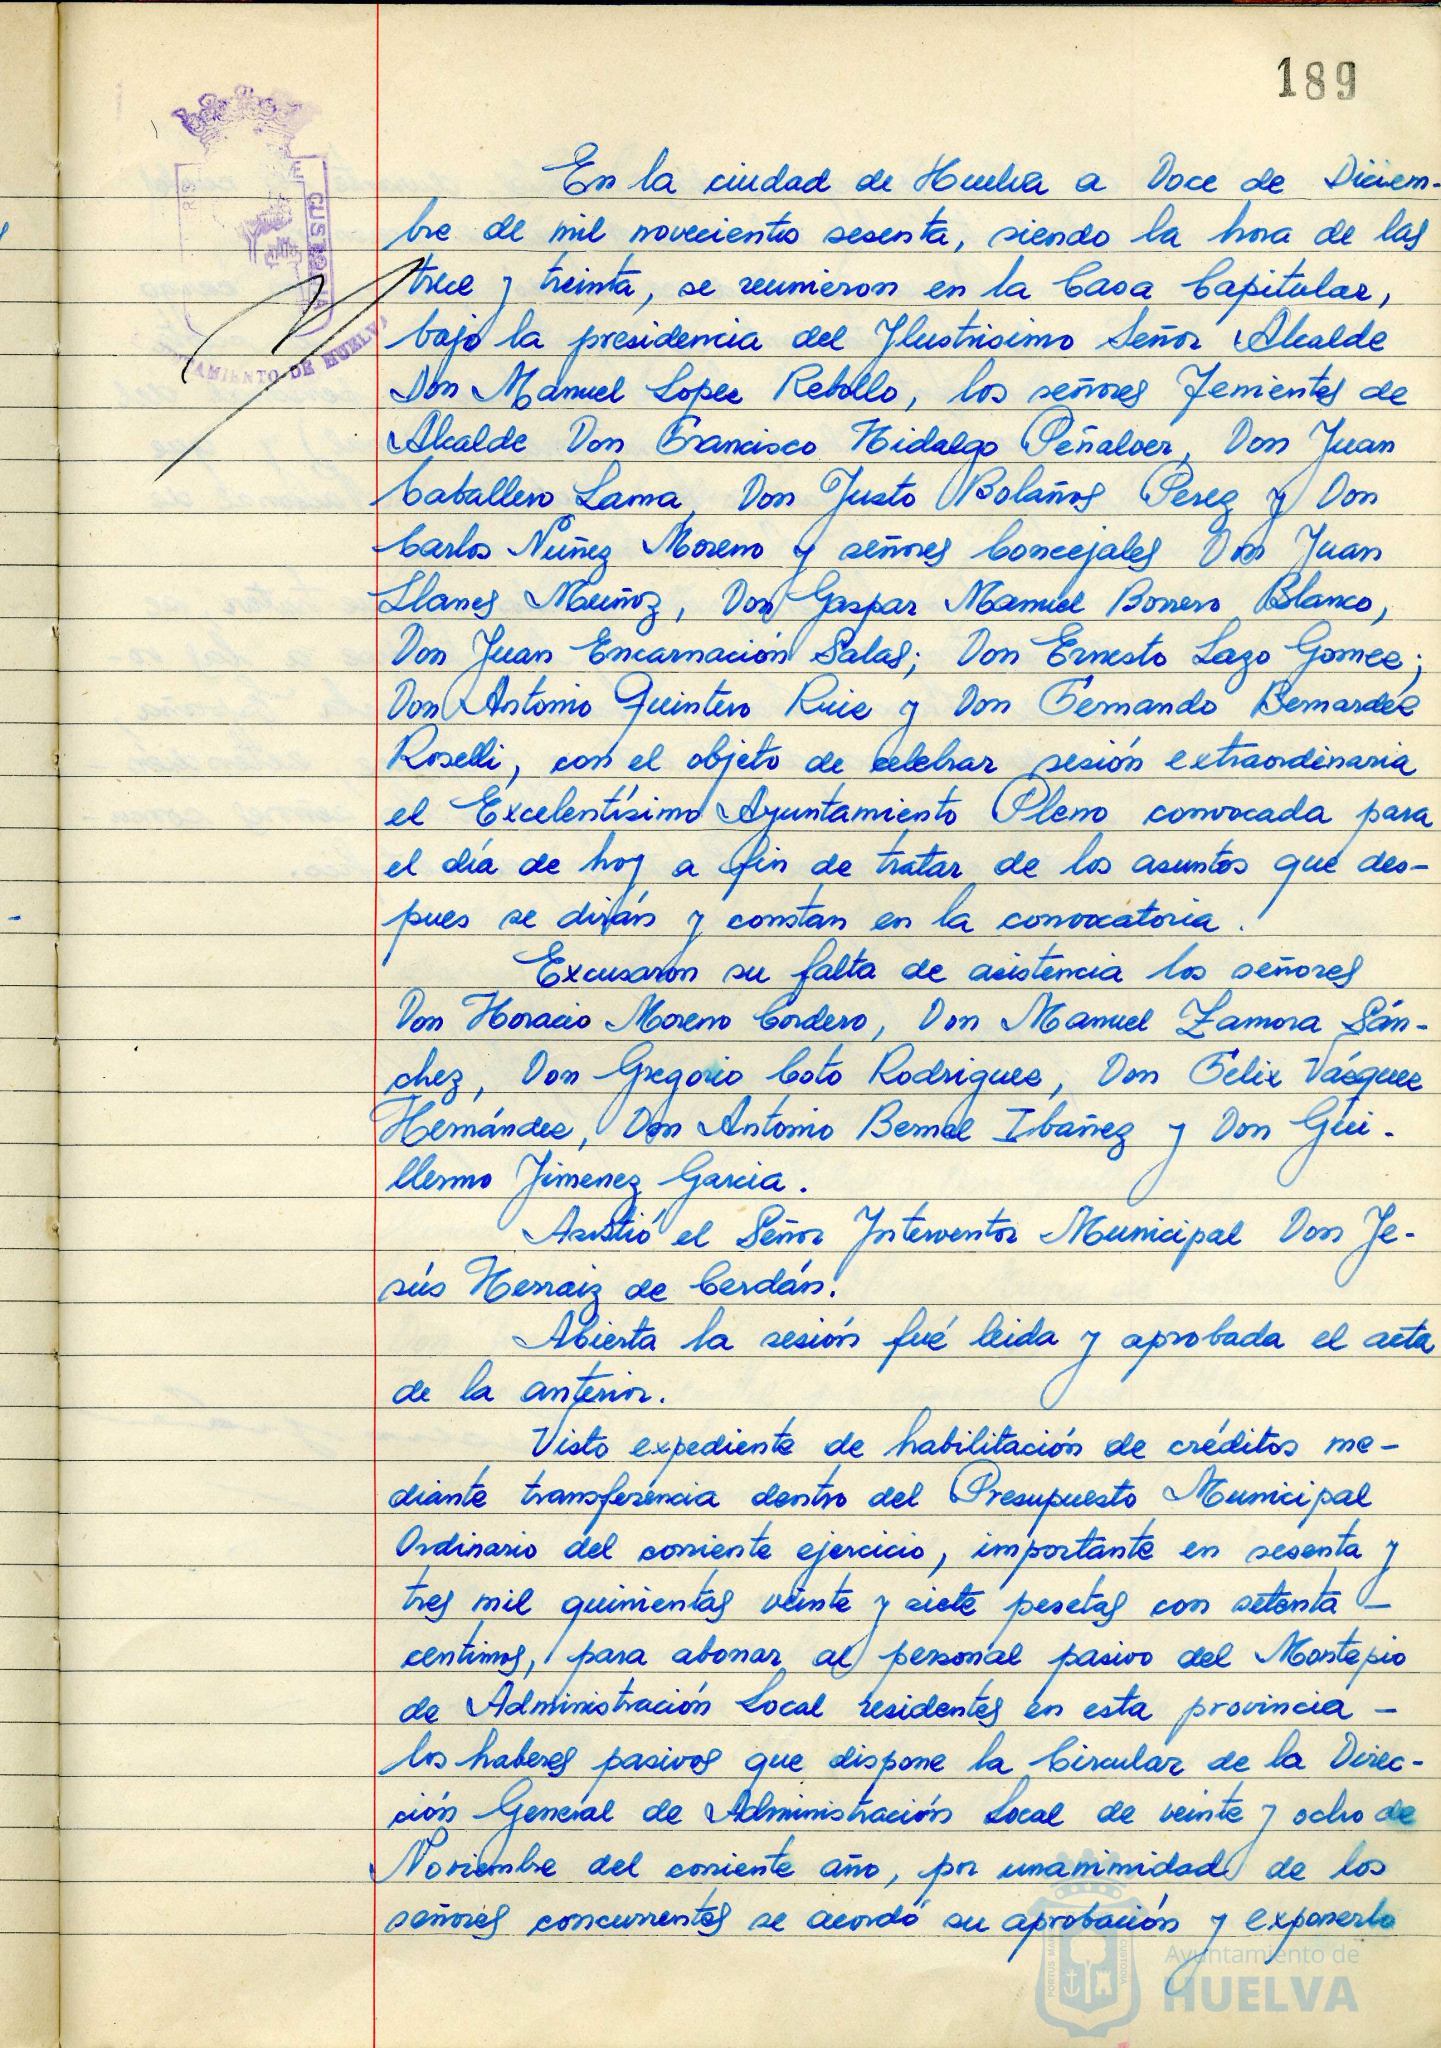 189
En la ciudad de Huelva a Doce de Diciem-
bre de mil novecientos sesenta, siendo la hora de las
trece y treinta, se reunieron en la Casa Capitular,
bajo la presidencia del Ylustrisimo Señor Alcalde
Don Manuel Lopez Rebollo, los señores Tenientes de
Alcalde Don Francisco Hidalgo Peñalver, Don Juan
Caballero Lama, Don Justo Bolaños Perez y Don
Carlos Nuñez Moreno y señores Concejales Don Juan
Llanes Muñoz, Don Gaspar Manuel Borrero Blanco,
Don Juan Encarnación Salas; Don Ernesto Lazo Gomez;
Don Antonio Quintero Ruiz y Don Fernando Bernardez
Roselli, con el objeto de celebrar sesión extraordinaria
el Excelentísimo Ayuntamiento Pleno convocada para
el día de hoy a fin de tratar de los asuntos que des-
pues se dirán y constan en la convocatoria.
Excusaron su falta de asistencia los señores
Don Horacio Moreno Cordero, Don Manuel Zamora Sán-
chez, Don Gregorio Coto Rodriguez, Don Felix Vázquez
Hernández, Don Antonio Bernal Ibañez y Don Gui-
llermo Jimenez Garcia.
Asistió el Señor Interventor Municipal Don Je-
sús Herraiz de Cerdán.
Abierta la sesión fué leida y aprobada el acta
de la anterior.
Visto expediente de habilitación de créditos me-
diante transferencia dentro del Presupuesto Municipal
Ordinario del corriente ejercicio, importante en sesenta y
tres mil quinientas veinte y siete pesetas con setenta -
centimos, para abonar al personal pasivo del Montepio
de Administración Local residentes en esta provincia -
los haberes pasivos que dispone la Circular de la Direc-
ción General de Administración Local de veinte y ocho de
Noviembre del corriente año, por unanimidad de los
señores concurrentes se acordó su aprobación y exponerlo
CUSTODIA
AMIENTO DE HUELVA
PORTUS MA
CUSTODIA
Ayuntamiento de
HUELVA